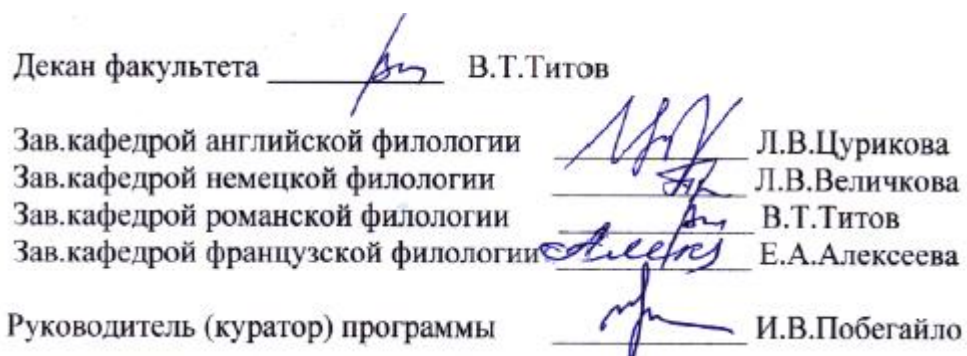 Декан факультета В.Т.Титов
Зав.кафедрой английской филологии Л.В.Цурикова
Зав.кафедрой немецкой филологии Л.В.Величкова
Зав.кафедрой романской филологии В.Т.Титов
Зав.кафедрой французской филологии Е.А.Алексеева
Руководитель (куратор) программы И.В.Побегайло